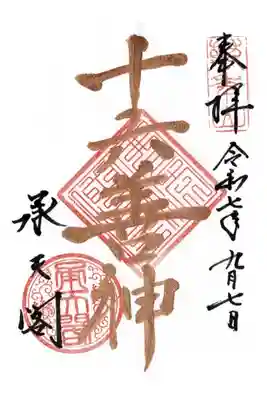 奉拝
令和七年九月七日
十六善神
承天閣
承天閣